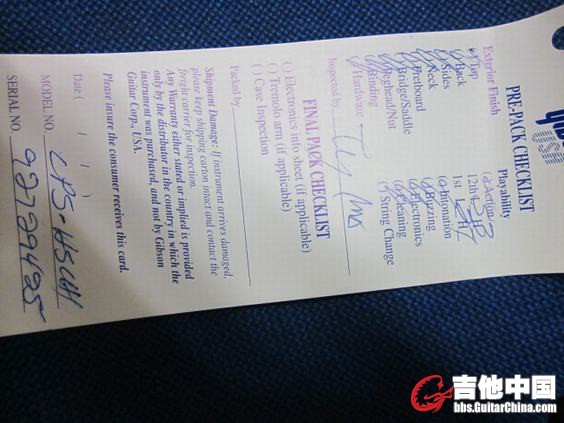 Gibson
USA
PRE-PACK CHECKLIST
Exterior Finish Playability
(✓) Top (✓) Action
(✓) Back 12th
(✓) Sides 1st
(✓) Neck (✓) Intonation
(✓) Fretboard (✓) Buzzing
(✓) Bridge/Saddle (✓) Electronics
(✓) Peghead/Nut (✓) Cleaning
(✓) Binding (✓) String Change
(✓) Hardware
Inspected by
FINAL PACK CHECKLIST
( ) Electronics into sheet (if applicable)
( ) Tremolo arm (if applicable)
( ) Case Inspection
Packed by
Shipment Damage: If instrument arrives damaged,
please keep shipping carton intact and contact the
freight carrier for inspection.
Any Warranty either stated or implied is provided
only by the distributor in the country in which the
instrument was purchased, and not by Gibson
Guitar Corp., USA.
Please insure the consumer receives this card.
Date ( / / )
MODEL NO. LPS-HSCH
SERIAL NO. 92729485
吉他中国
bbs.GuitarChina.com